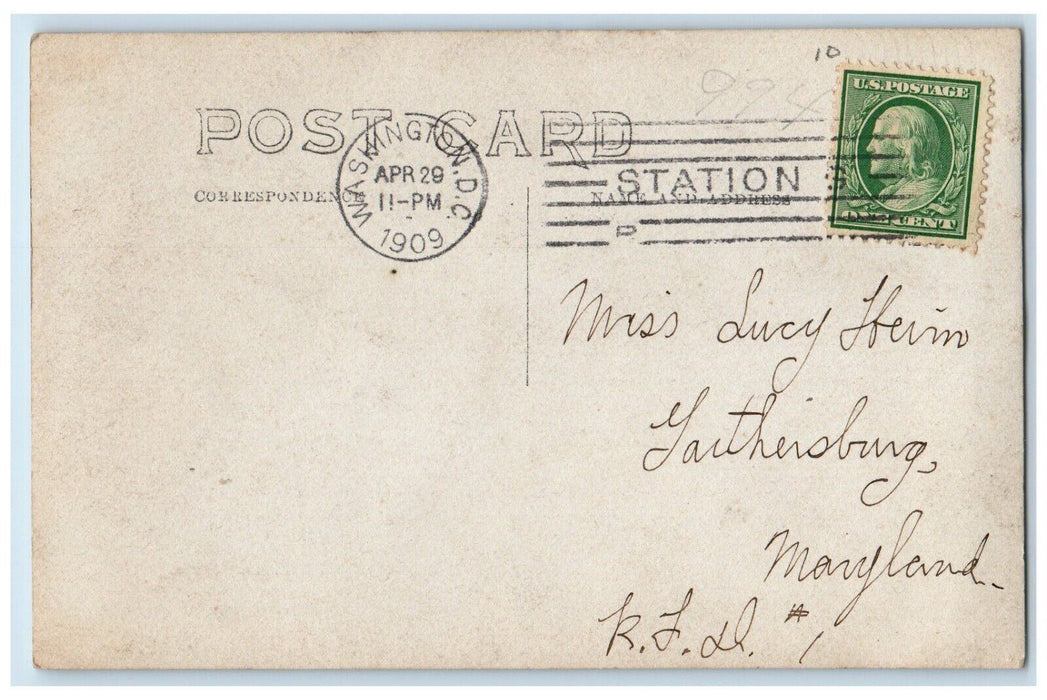 10
994
U.S. POSTAGE
POST CARD
WASHINGTON, D.C.
APR 29
11-PM
1909
STATION
CORRESPONDENCE
NAME AND ADDRESS
ONE CENT
Miss Lucy
Gaithersburg,
Maryland.
R.F.D. #1